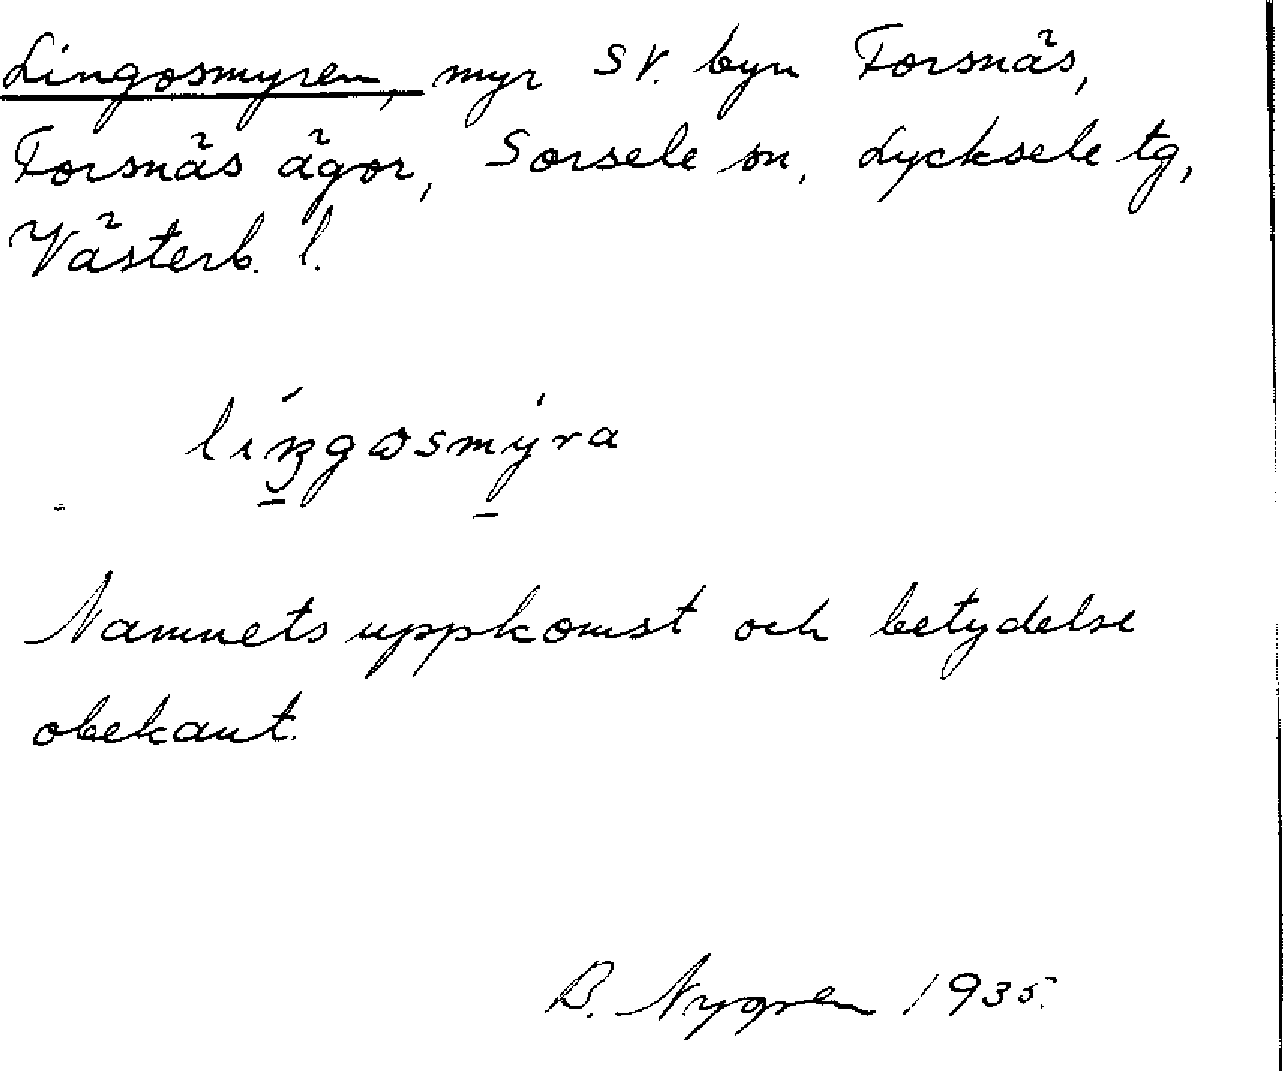 Lingosmyren, myr SV. byn Forsnäs,
Forsnäs ägor, Sorsele sn, Lycksele tg,
Västerb. l.
Namnets uppkomst och betydelse
obekant.
B. Nygren 1935.